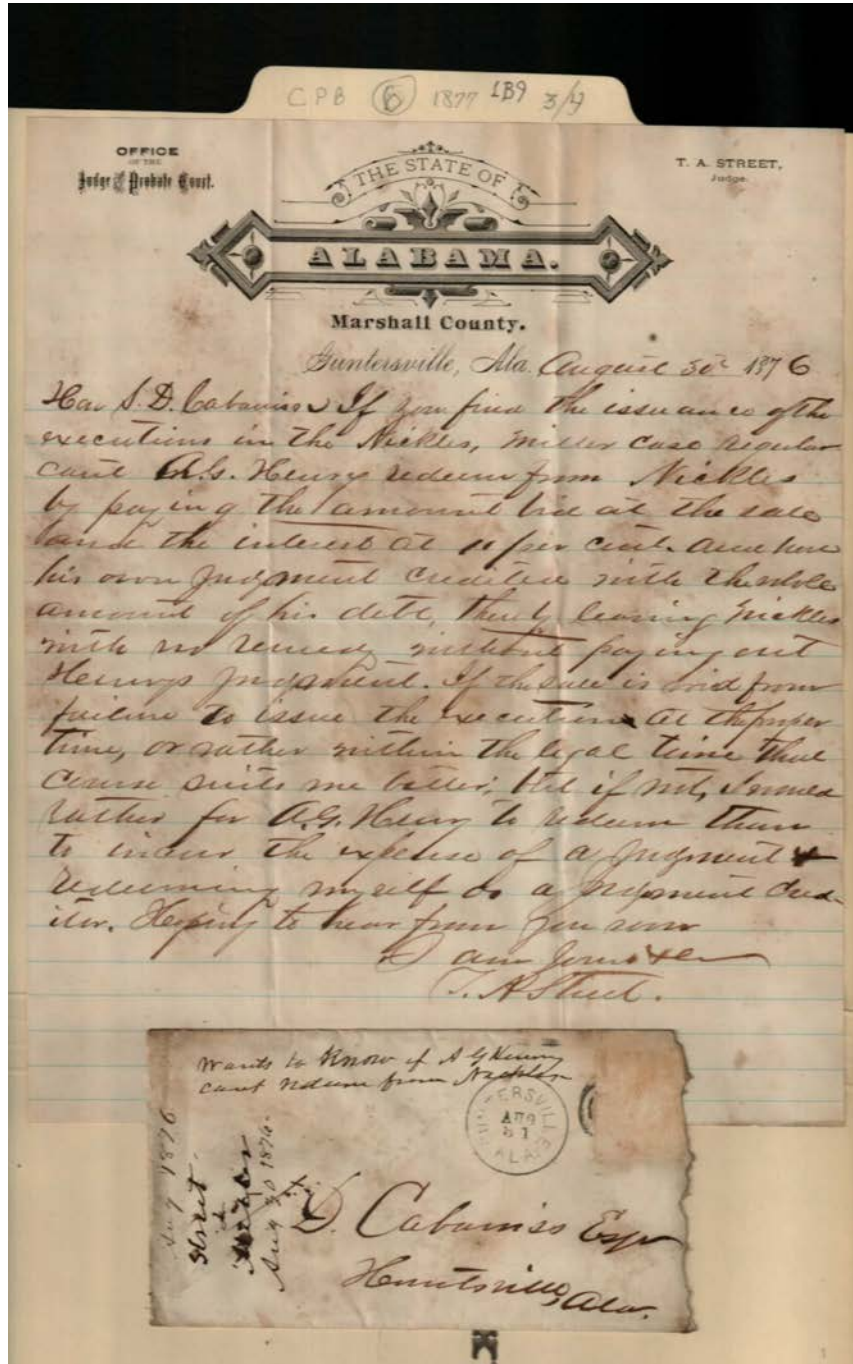 CPB 6 1877 LB9 3/4
OFFICE
OF THE
Judge of Probate Court.
THE STATE OF
ALABAMA.
Marshall County.
T. A. STREET,
Judge.
Guntersville, Ala. August 30th 1876
Hon S. D. Cabaniss If you find the issuance of the
executions in the Nickles, Miller case regular
cant A.G. Henry redeem from Nickles
by paying the amount bid at the sale
and the interest at 10 per cent. and have
his own judgment credited with the whole
amount of his debt, thereby leaving Nickles
with no remedy without paying out
Henrys judgment. If the sale is void from
failure to issue the executions at the proper
time, or rather within the legal time that
course suits me better; but if not, I would
rather for A.G. Henry to redeem than
to incur the expense of a judgment &
redeeming myself as a judgment cred-
itor. Hoping to hear from you soon
I am yours &c
T. A Street.
Wants to know if A G Henry
cant redeem from Nickles
GUNTERSVILLE
AUG
31
ALA
Aug 1876
Street
Aug 30 1876.
S. D. Cabaniss Esqr
Huntsville,
Ala.